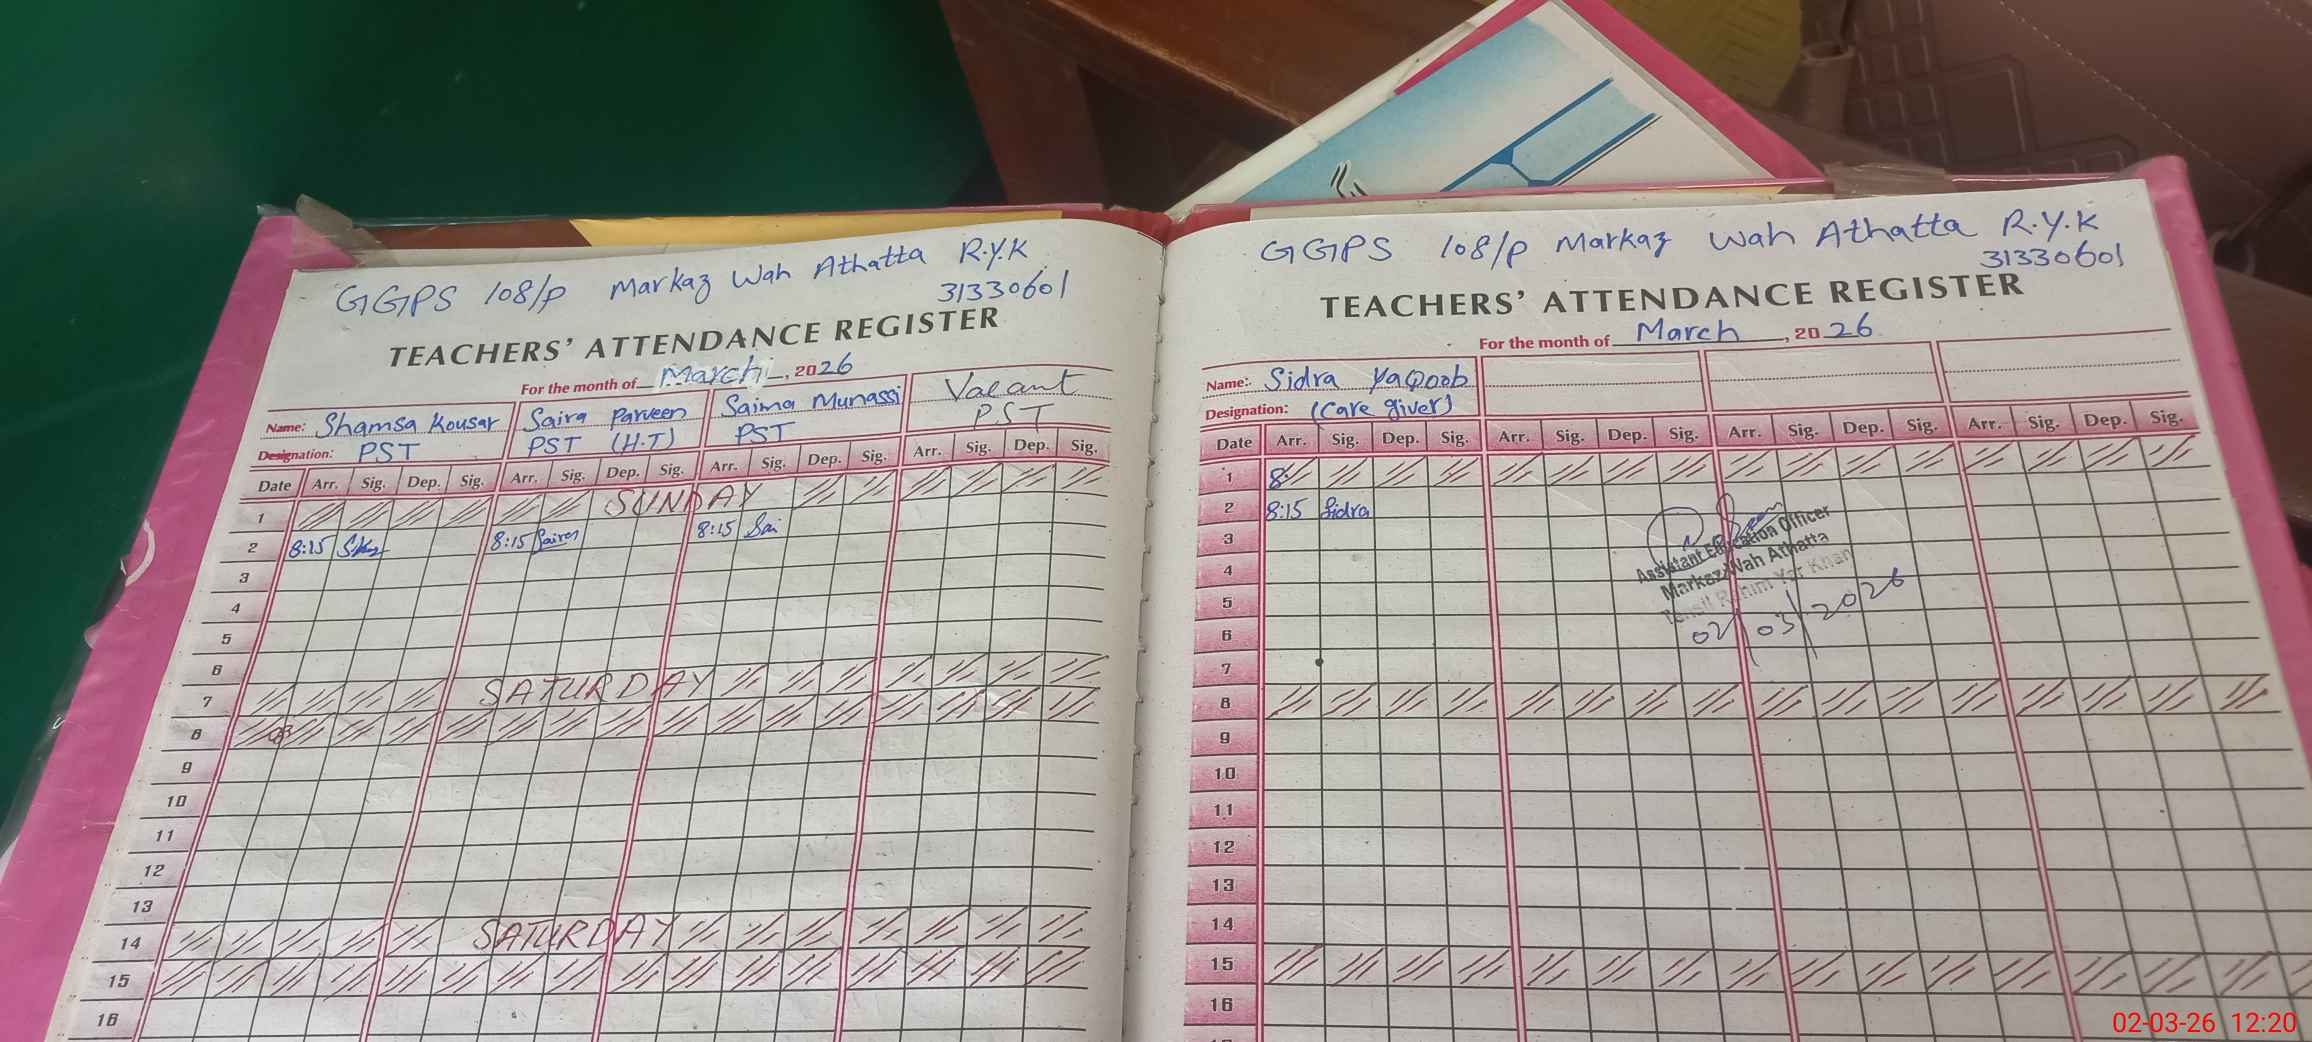 GGPS 108/P Markaz Wah Athatta R.Y.K
31330601
TEACHERS' ATTENDANCE REGISTER
For the month of March, 2026
Name: Shamsa Kousar Saira Parveen Saima Munassi Vacant
Designation: PST PST (H.T) PST PST
Date Arr. Sig. Dep. Sig. Arr. Sig. Dep. Sig. Arr. Sig. Dep. Sig. Arr. Sig. Dep. Sig.
1 SUNDAY
2 8:15 8:15 Saira 8:15 Sai
3
4
5
6
7 SATURDAY
8
9
10
11
12
13
14 SATURDAY
15
16
GGPS 108/P Markaz Wah Athatta R.Y.K
31330601
TEACHERS' ATTENDANCE REGISTER
For the month of March, 2026
Name: Sidra Yaqoob
Designation: (Care giver)
Date Arr. Sig. Dep. Sig. Arr. Sig. Dep. Sig. Arr. Sig. Dep. Sig. Arr. Sig. Dep. Sig.
1 8
2 8:15 Sidra
3
4
5
6
7
8
9
10
11
12
13
14
15
16
Assistant Education Officer
Markaz Wah Athatta
Tehsil Rahim Yar Khan
02/03/2026
02-03-26 12:20